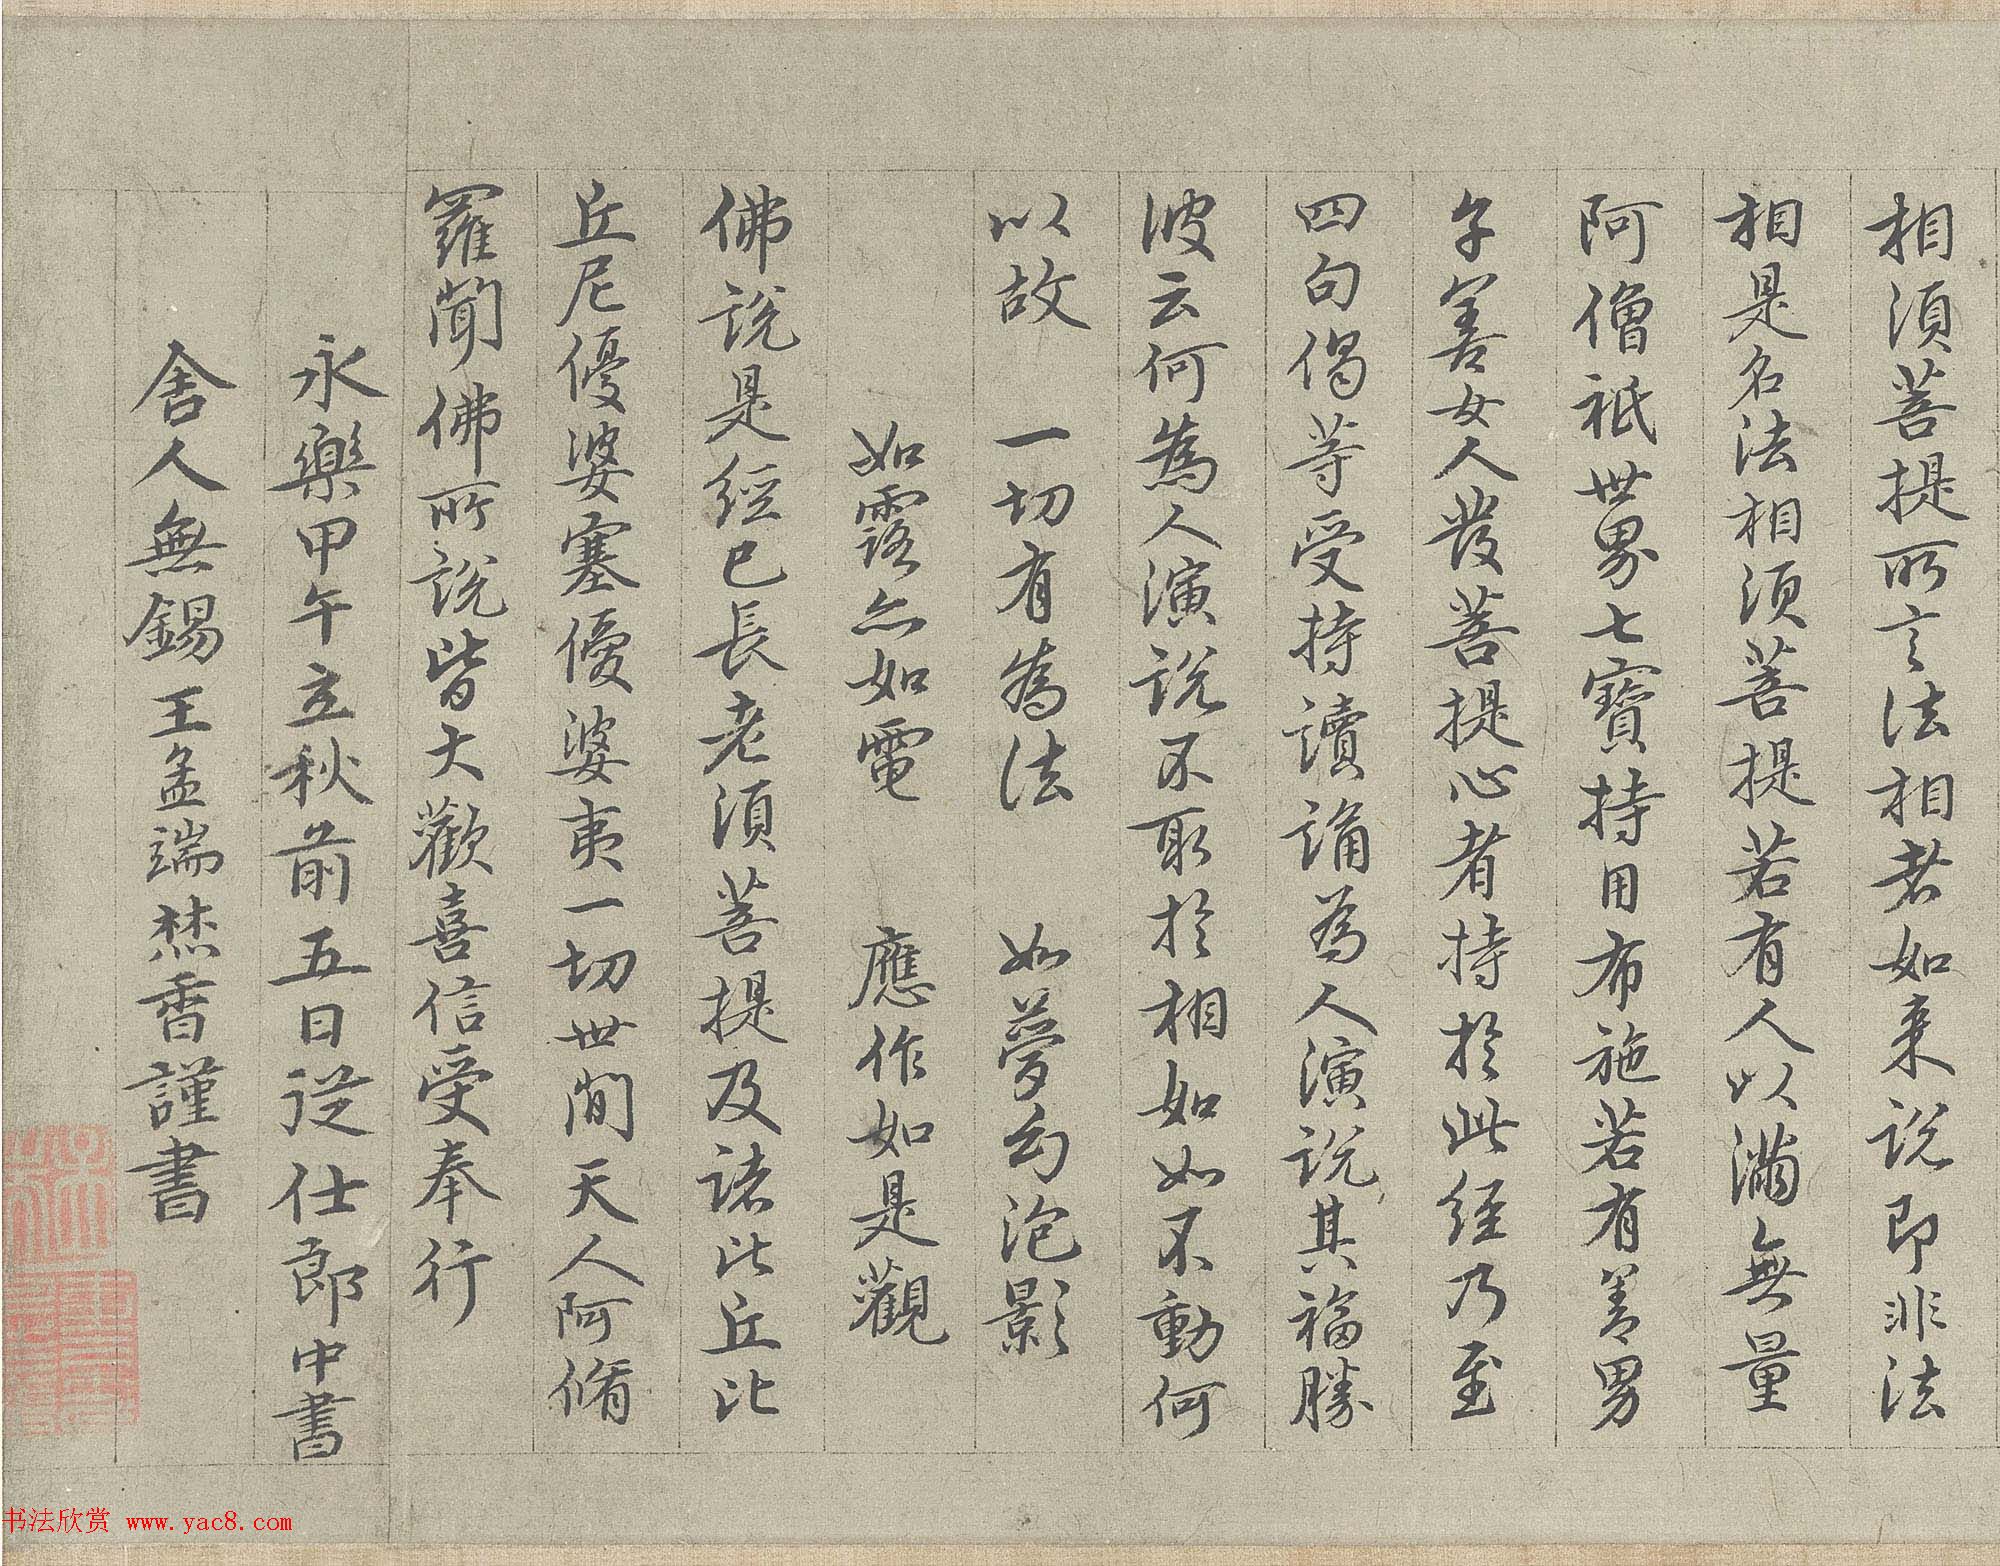 相須菩提所言法相者如来說即非法
相是名法相須菩提若有人以滿無量
阿僧祇世界七寶持用布施若有善男
子善女人發菩提心者持於此經乃至
四句偈等受持讀誦為人演說其福勝
彼云何為人演說不取於相如如不動何
以故　一切有為法　如夢幻泡影
如露亦如電　應作如是觀
佛說是經已長老須菩提及諸比丘比
丘尼優婆塞優婆夷一切世間天人阿脩
羅聞佛所說皆大歡喜信受奉行
永樂甲午立秋前五日從仕郎中書
舍人無錫王孟端焚香謹書
书法欣赏 www.yac8.com